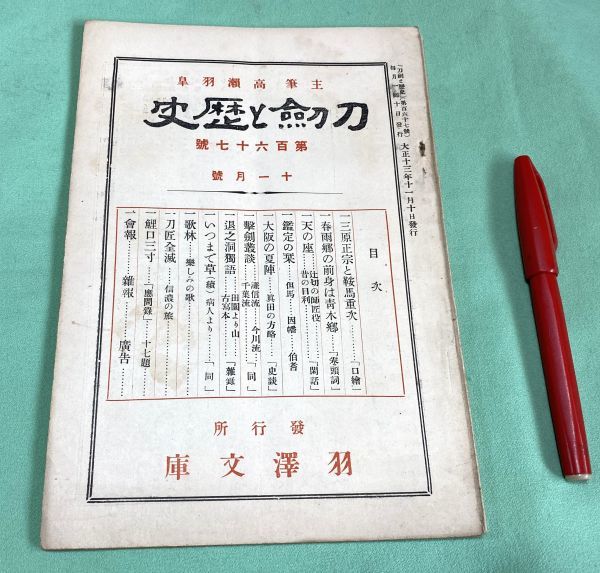 「刀劍と歷史」第百六十七號
每月一回十日發行
大正十三年十一月十日發行
主筆高瀨羽皐
刀劍と歷史
第百六十七號
十一月號
目次
一三原正宗と鞍馬重次……「口繪」
一春雨鄕の前身は靑木鄕……「卷頭詞」
一天の座……辻切の師匠役 昔の目利……「閑話」
一鑑定の栞……但馬 因幡 伯耆
一大阪の夏陣……眞田の方略……「史談」
一擊劍叢談……漾信流 今川流 千葉流……「同」
一退之洞獨語……田園より山 古寫本……「雜錄」
一いつまで草(續)病人より……「同」
一歌林……樂しみの歌
一刀匠全滅……信濃の旅
一鯉口三寸……「應問錄」……十七題
一會報……雜報……廣告
發行所
羽澤文庫